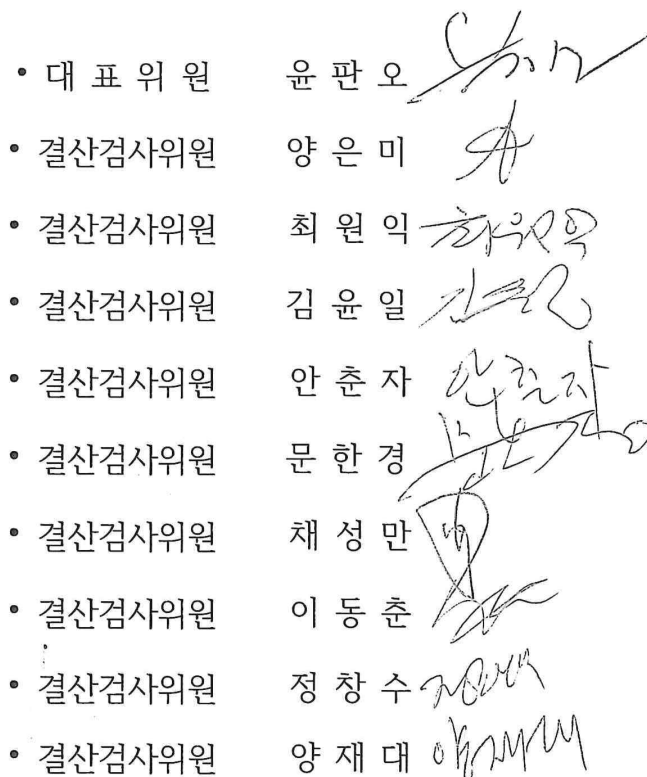 • 대 표 위 원 윤 판 오
• 결산검사위원 양 은 미
• 결산검사위원 최 원 익 최원익
• 결산검사위원 김 윤 일
• 결산검사위원 안 춘 자 안춘자
• 결산검사위원 문 한 경
• 결산검사위원 채 성 만
• 결산검사위원 이 동 춘
• 결산검사위원 정 창 수
• 결산검사위원 양 재 대